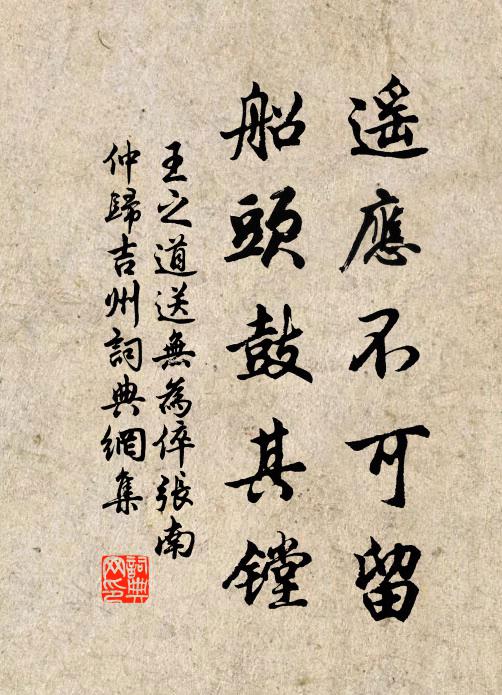 遥應不可留
船頭鼓其镗
王之道送無為倅張南
仲歸吉州詞典網集
詞典
网印